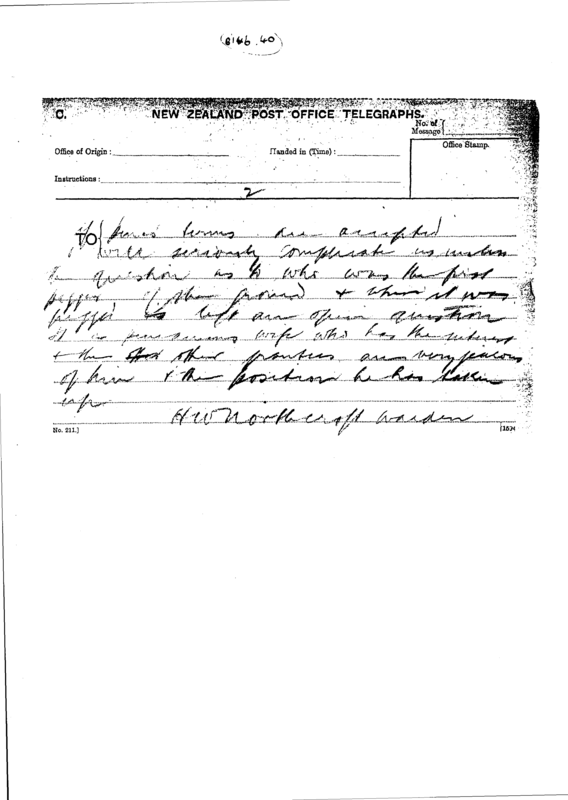 (8146.40)
C. NEW ZEALAND POST OFFICE TELEGRAPHS.
No. of Message
Office of Origin: Handed in (Time): Office Stamp.
Instructions:
2
TO if terms are accepted
will seriously complicate us unless
the question as to who was the first
pegger of the ground & when it was
pegged is left an open question
It is wife who has the interest
& the other parties are very jealous
of him & the position he has taken
up
H W Northcroft Warden
No. 211.]